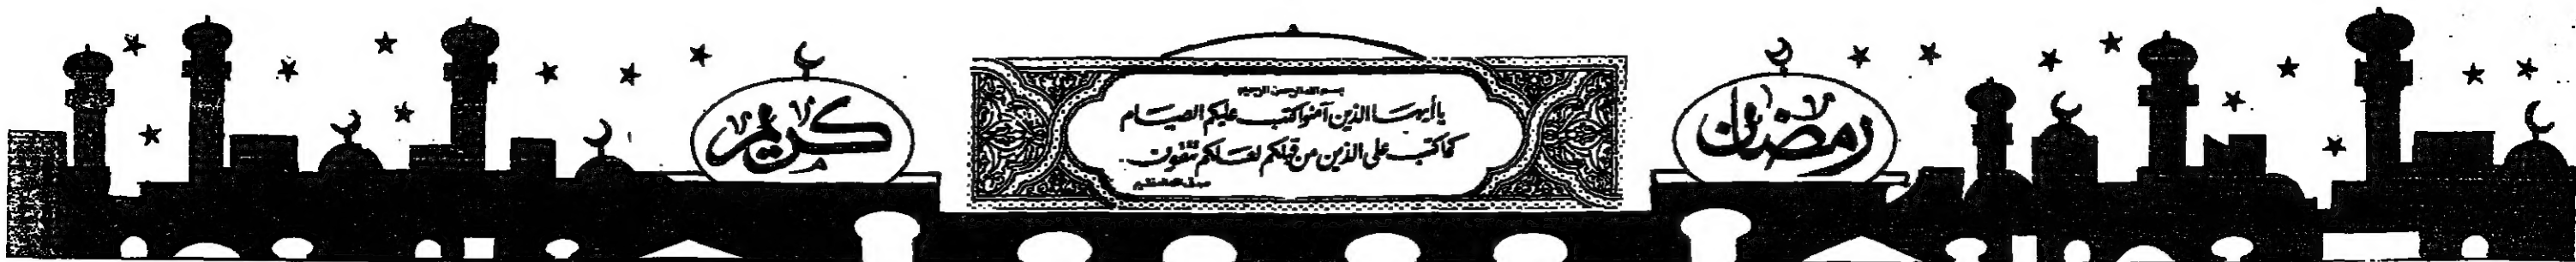 رمضان
كريم
بسم الله الرحمن الرحيم
يا أيها الذين آمنوا كتب عليكم الصيام
كما كتب على الذين من قبلكم لعلكم تتقون
صدق الله العظيم